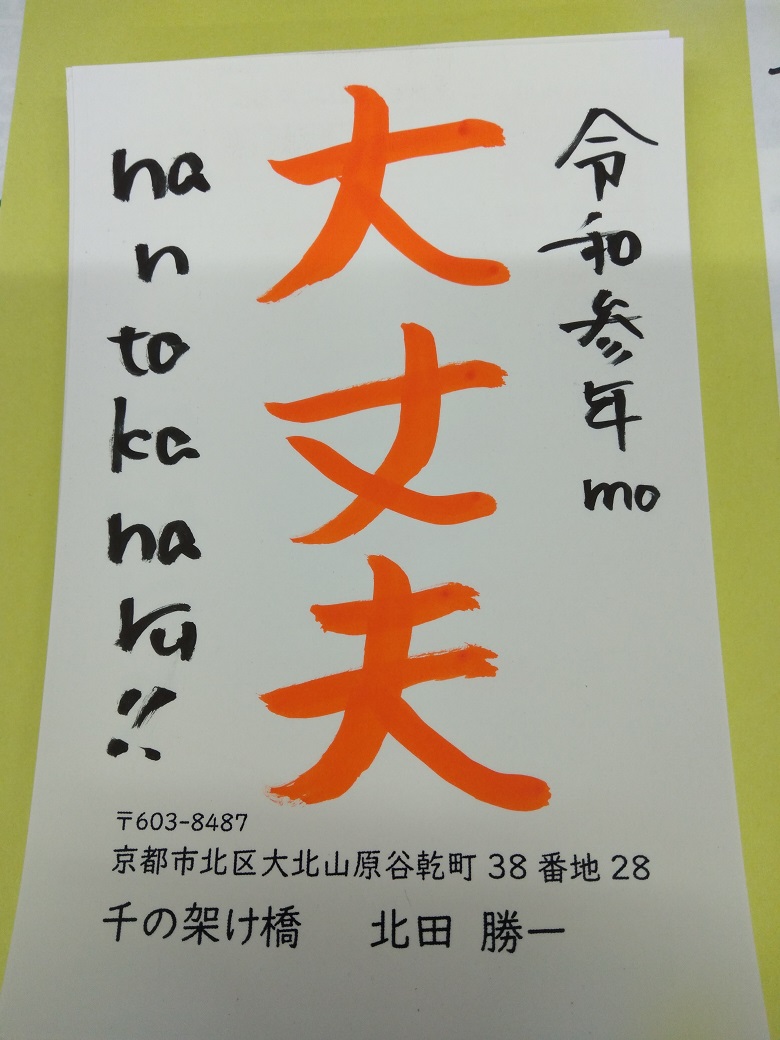 令和参年mo
大丈夫
nantokanaru!!
〒603-8487
京都市北区大北山原谷乾町 38 番地 28
千の架け橋 北田 勝一